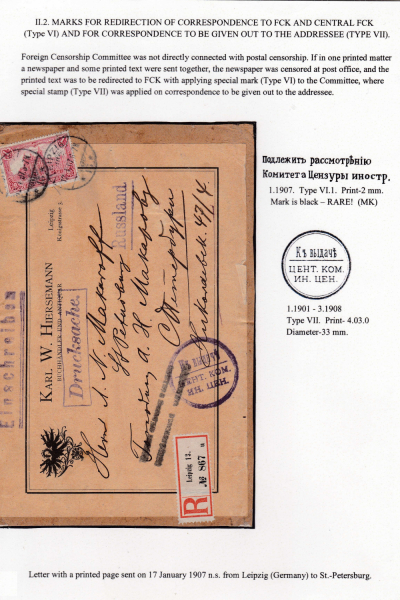 II.2. MARKS FOR REDIRECTION OF CORRESPONDENCE TO FCK AND CENTRAL FCK
(Type VI) AND FOR CORRESPONDENCE TO BE GIVEN OUT TO THE ADDRESSEE (TYPE VII).
Foreign Censorship Committee was not directly connected with postal censorship. If in one printed matter
a newspaper and some printed text were sent together, the newspaper was censored at post office, and the
printed text was to be redirected to FCK with applying special mark (Type VI) to the Committee, where
special stamp (Type VII) was applied on correspondence to be given out to the addressee.
Подлежитъ рассмотрѣнію
Комитета Цензуры иностр.
1.1907. Type VI.1. Print-2 mm.
Mark is black – RARE! (MK)
Къ выдачѣ
ЦЕНТ. КОМ.
ИН. ЦЕН.
1.1901 - 3.1908
Type VII. Print- 4.03.0
Diameter-33 mm.
Einschreiben
KARL W. HIERSEMANN
BUCHHÄNDLER UND ANTIQUAR
Leipzig
Königsstrasse 3
Drucksache.
Russland
Herrn A. N. Makaroff
St Petersburg
А. Н. Макарову
С Петербургъ
Николаевск. 47/4
Къ выдачѣ
ЦЕНТ. КОМ.
ИН. ЦЕН.
R
Leipzig 13.
№ 867
Letter with a printed page sent on 17 January 1907 n.s. from Leipzig (Germany) to St.-Petersburg.